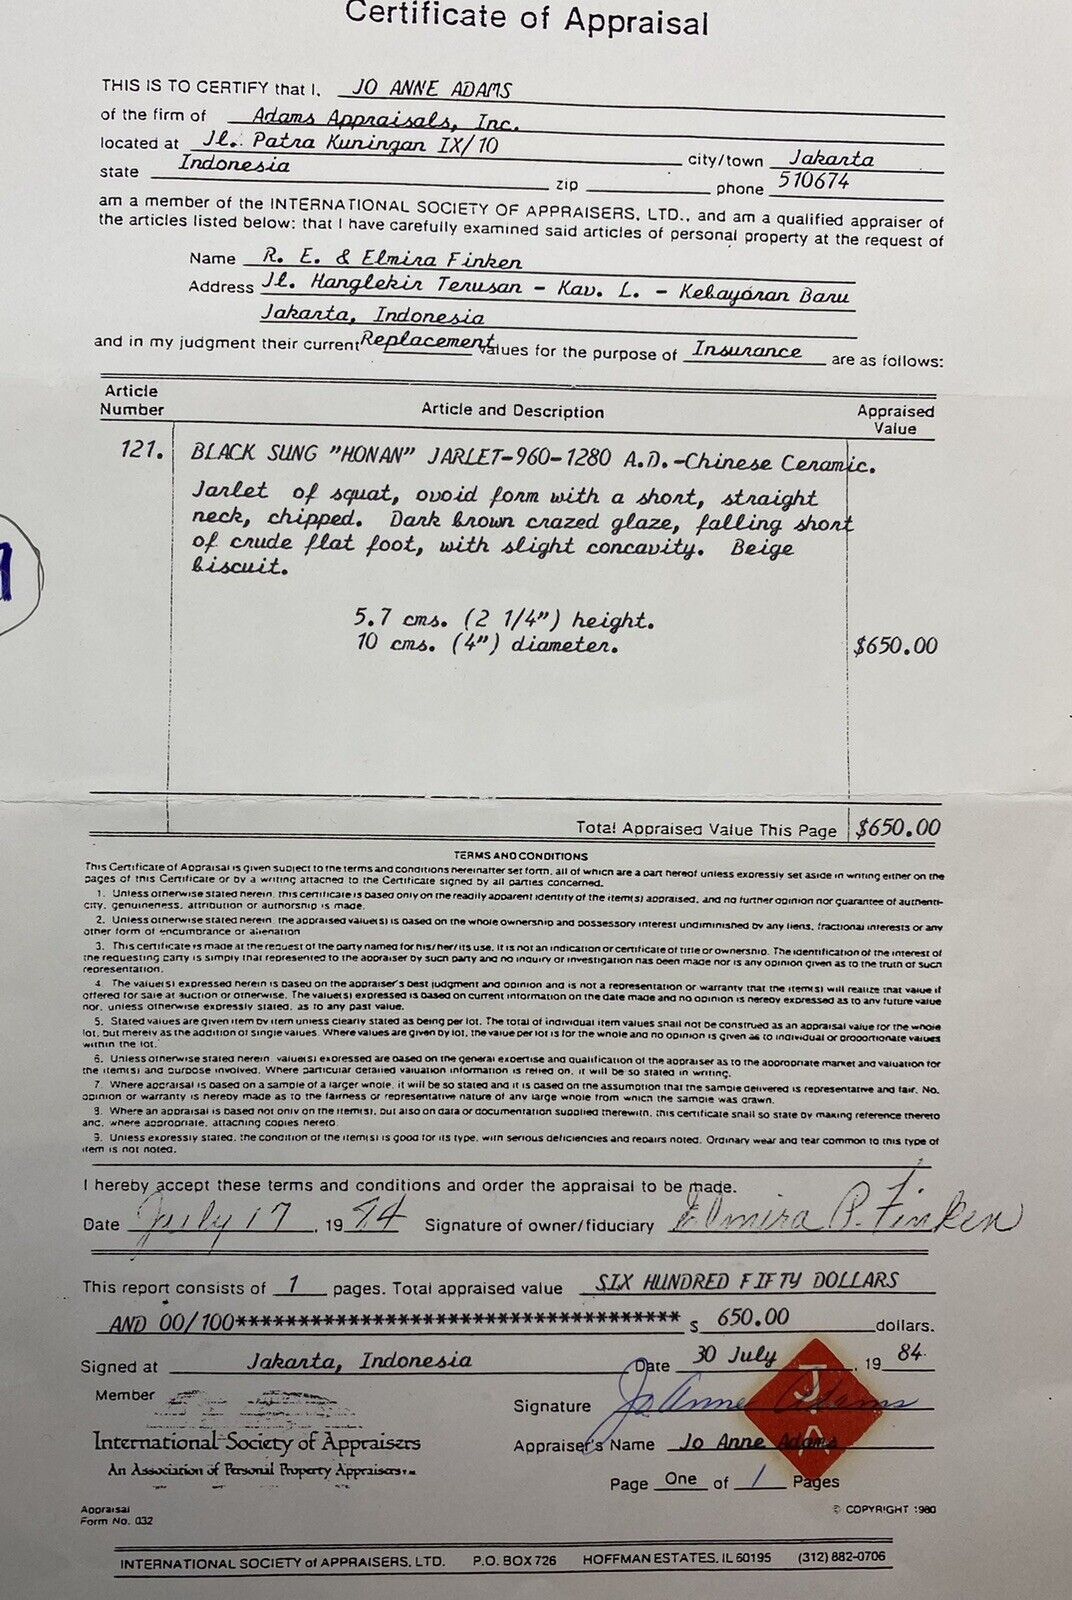 Certificate of Appraisal
THIS IS TO CERTIFY that I, JO ANNE ADAMS
of the firm of Adams Appraisals, Inc.
located at Jl. Patra Kuningan IX/10 city/town Jakarta
state Indonesia zip phone 510674
am a member of the INTERNATIONAL SOCIETY OF APPRAISERS, LTD., and am a qualified appraiser of
the articles listed below: that I have carefully examined said articles of personal property at the request of
Name R. E. & Elmira Finken
Address Jl. Hanglekir Terusan - Kav. L. - Kebayoran Baru
Jakarta, Indonesia
and in my judgment their current Replacement values for the purpose of Insurance are as follows:
Article Number
Article and Description
Appraised Value
121. BLACK SUNG "HONAN" JARLET-960-1280 A.D.-Chinese Ceramic.
Jarlet of squat, ovoid form with a short, straight
neck, chipped. Dark brown crazed glaze, falling short
of crude flat foot, with slight concavity. Beige
biscuit.
5.7 cms. (2 1/4") height.
10 cms. (4") diameter. $650.00
Total Appraised Value This Page $650.00
TERMS AND CONDITIONS
This Certificate of Appraisal is given subject to the terms and conditions hereinafter set form, all of which are a part hereof unless expressly set aside in writing either on the
pages of this Certificate or by a writing attached to the Certificate signed by all parties concerned.
1. Unless otherwise stated herein, this certificate is based only on the readily apparent identity of the item(s) appraised, and no further opinion nor guarantee of authenti-
city, genuineness, attribution or authorship is made.
2. Unless otherwise stated herein, the appraised value(s) is based on the whole ownership and possessory interest undiminished by any liens, fractional interests or any
other form of encumbrance or alienation
3. This certificate is made at the request of the party named for his/her/its use. It is not an indication or certificate of title or ownership. The identification of the interest of
the requesting party is simply that represented to the appraiser by such party and no inquiry or investigation has been made nor is any opinion given as to the truth of such
representation.
4. The value(s) expressed herein is based on the appraiser's best judgment and opinion and is not a representation or warranty that the item(s) will realize that value if
offered for sale at auction or otherwise. The value(s) expressed is based on current information on the date made and no opinion is hereby expressed as to any future value
nor, unless otherwise expressly stated, as to any past value.
5. Stated values are given item by item unless clearly stated as being per lot. The total of individual item values shall not be construed as an appraisal value for the whole
lot, but merely as the addition of single values. Where values are given by lot, the value per lot is for the whole and no opinion is given as to individual or proportionate values
within the lot.
6. Unless otherwise stated herein, value(s) expressed are based on the general expertise and qualification of the appraiser as to the appropriate market and valuation for
the item(s) and purpose involved. Where particular detailed valuation information is relied on, it will be so stated in writing.
7. Where appraisal is based on a sample of a larger whole, it will be so stated and it is based on the assumption that the sample delivered is representative and fair. No
opinion or warranty is hereby made as to the fairness or representative nature of any large whole from which the sample was drawn.
8. Where an appraisal is based not only on the item(s), but also on data or documentation supplied therewith, this certificate shall so state by making reference thereto
and, where appropriate, attaching copies hereto.
9. Unless expressly stated, the condition of the item(s) is good for its type, with serious deficiencies and repairs noted. Ordinary wear and tear common to this type of
item is not noted.
I hereby accept these terms and conditions and order the appraisal to be made.
Date July 17, 1984 Signature of owner/fiduciary Elmira P. Finken
This report consists of 1 pages. Total appraised value SIX HUNDRED FIFTY DOLLARS
AND 00/100************************************ $ 650.00 dollars.
Signed at Jakarta, Indonesia Date 30 July, 19 84
Member
Signature Jo Anne Adams
J
International Society of Appraisers
Appraiser's Name Jo Anne Adams
A
An Association of Personal Property Appraisers TM
Page One of 1 Pages
Appraisal
Form No. 032
© COPYRIGHT 1980
INTERNATIONAL SOCIETY of APPRAISERS, LTD. P.O. BOX 726 HOFFMAN ESTATES, IL 60195 (312) 882-0706